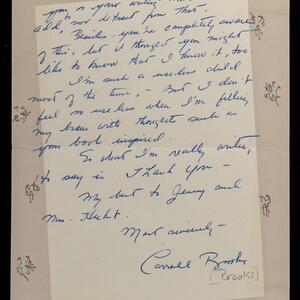 you or your writing
add to, nor detract from that.
Besides, you're completely aware
of this, but I thought you might
like to know that I know it, too.
I'm such a useless child
most of the time, - But I don't
feel so useless when I'm filling
my brain with thoughts such as
your book inspired.
So what I'm really writing
to say is Thank you -
My best to Jenny and
Mrs. Hecht.
Most sincerely -
Carroll Brooks
[Brooks]